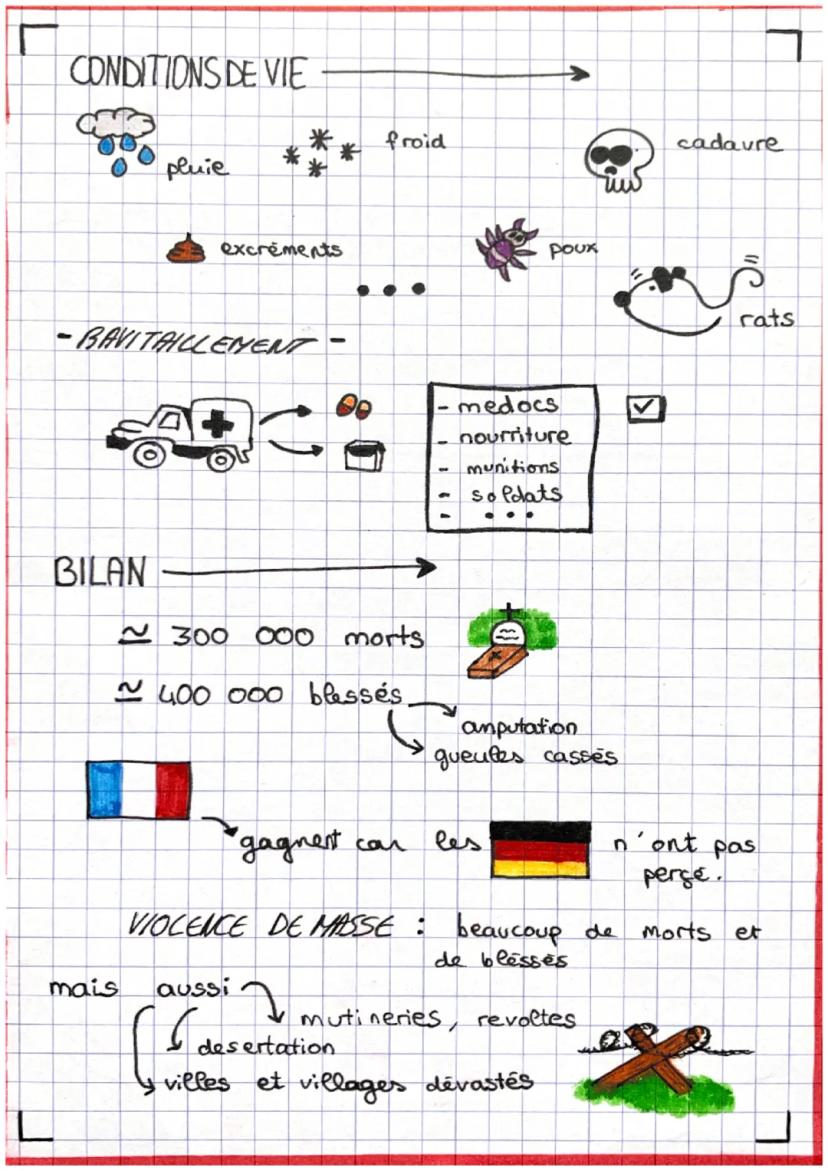 CONDITIONS DE VIE
pluie
froid
cadavre
excréments
poux
rats
- RAVITAILLEMENT -
- medocs
- nourriture
- munitions
- soldats
- ...
BILAN
≃ 300 000 morts
≃ 400 000 blessés
amputation
gueules cassés
gagnent car les n'ont pas
percé.
VIOLENCE DE MASSE : beaucoup de morts et
de bléssés
mais aussi
mutineries, revoltes
desertation
villes et villages dévastés